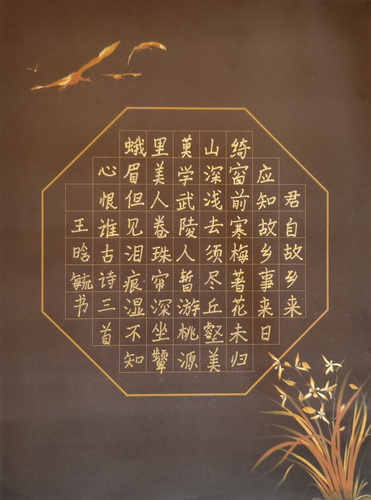 君自故乡来
应知故乡事来日
绮窗前寒梅著花未归
山深浅去须尽丘壑美
莫学武陵人暂游桃源
里美人卷珠帘深坐颦
蛾眉但见泪痕湿不知
心恨谁古诗三首
王晗毓书